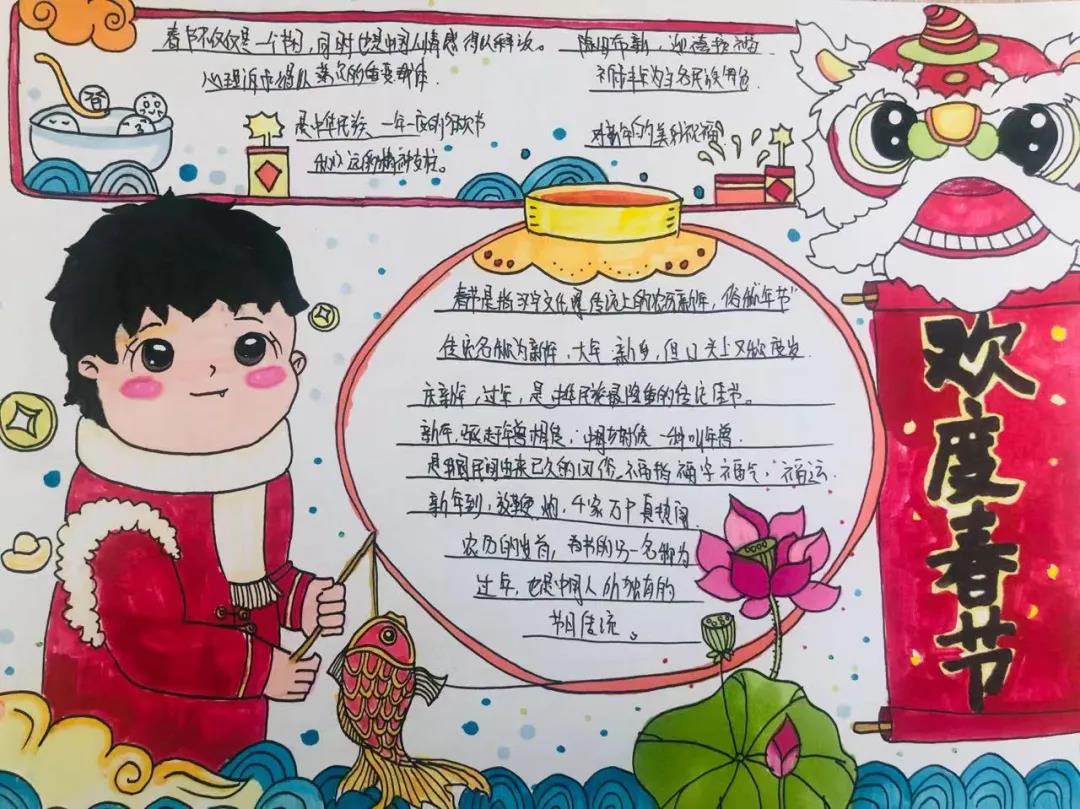 春节不仅仅是一个节日，同时也是中国人情感得以释放。
心理诉求得以满足的重要载体
是中华民族一年一度的狂欢节
和永远的精神支柱。
除旧布新，迎禧接福
祈求丰年为主名民族角色
对新年的美好祝福
春节是指汉字文化圈传统上的农历新年，俗称"年节"
传统名称为新年，大年 新岁，但口头上又称度岁
庆新年，过年，是中华民族最隆重的传统佳节。
新年，驱赶年兽相传，中国古时候一种叫年兽
是中国民间由来已久的风俗，福指福字福气，福运
新年到，放鞭炮，千家万户真热闹
农历的岁首，春节的另一名称为
过年，也是中国人所独有的
节日传统。
欢度春节